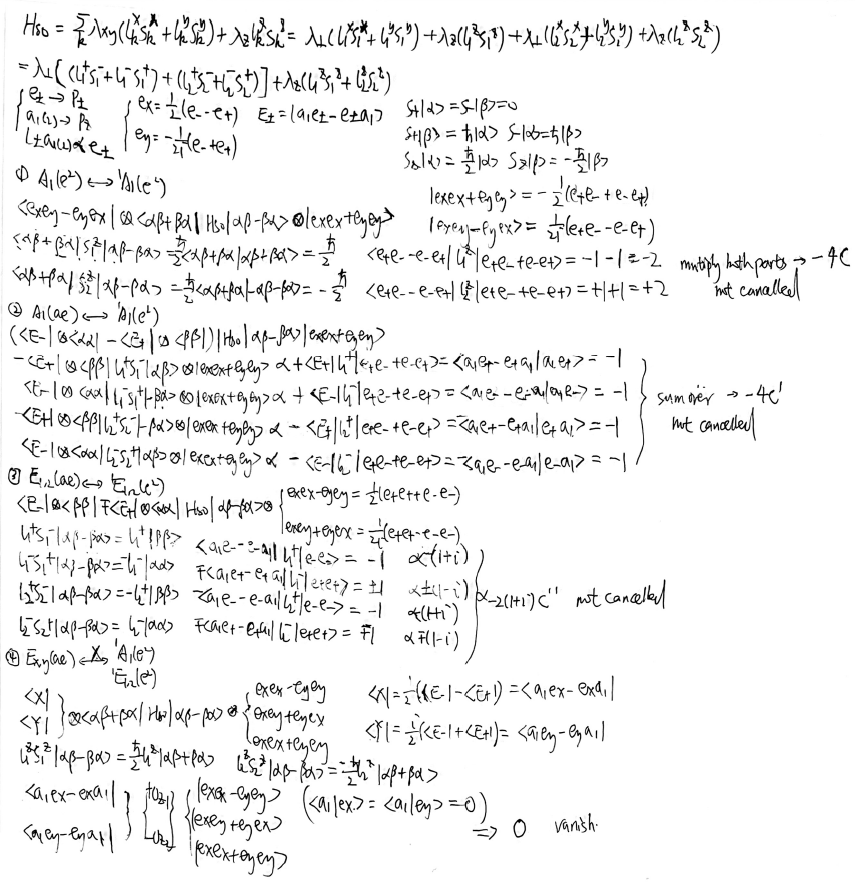 H_{SO} = \sum_k λ_{xy}(l_k^x s_k^x + l_k^y s_k^y) + λ_z l_k^z s_k^z = λ_⊥(l_1^x s_1^x + l_1^y s_1^y) + λ_z(l_1^z s_1^z) + λ_⊥(l_2^x s_2^x + l_2^y s_2^y) + λ_z(l_2^z s_2^z)
= λ_⊥[(l_1^+ s_1^- + l_1^- s_1^+) + (l_2^+ s_2^- + l_2^- s_2^+)] + λ_z(l_1^z s_1^z + l_2^z s_2^z)
{ e_± → P_±
a_1(2) → P_z
l_± a_1(2) ∝ e_±
{ e_x = \frac{1}{2}(e_- - e_+)
e_y = -\frac{1}{2i}(e_- + e_+)
E_± = |a_1 e_± - e_± a_1⟩
S_+|α⟩ = S_-|β⟩ = 0
S_+|β⟩ = ħ|α⟩ S_-|α⟩ = ħ|β⟩
S_z|α⟩ = \frac{ħ}{2}|α⟩ S_z|β⟩ = -\frac{ħ}{2}|β⟩
① A_1(e²) ↔ ¹A_1(e²)
|e_x e_x + e_y e_y⟩ = -\frac{1}{2}(e_+ e_- + e_- e_+)
⟨e_x e_y - e_y e_x| ⊗ ⟨αβ+βα| H_{SO} |αβ-βα⟩ ⊗ |e_x e_x + e_y e_y⟩
|e_x e_y - e_y e_x⟩ = \frac{1}{2i}(e_+ e_- - e_- e_+)
⟨αβ+βα| S_1^z |αβ-βα⟩ = \frac{ħ}{2}⟨αβ+βα|αβ+βα⟩ = \frac{ħ}{2} ⟨e_+ e_- - e_- e_+| l_1^z |e_+ e_- + e_- e_+⟩ = -1-1 = -2 multiply both parts → -4C
⟨αβ+βα| S_2^z |αβ-βα⟩ = \frac{ħ}{2}⟨αβ+βα|-αβ-βα⟩ = -\frac{ħ}{2} ⟨e_+ e_- - e_- e_+| l_2^z |e_+ e_- + e_- e_+⟩ = +1+1 = +2 not cancelled
② A_1(ae) ↔ ¹A_1(e²)
(⟨E_-| ⊗ ⟨αα| - ⟨E_+| ⊗ ⟨ββ|) | H_{SO} | αβ-βα⟩ |e_x e_x + e_y e_y⟩
-⟨E_+| ⊗ ⟨ββ| l_1^+ s_1^- |αβ⟩ ⊗ |e_x e_x + e_y e_y⟩ α + ⟨E_+| l_1^+ |e_+ e_- + e_- e_+⟩ = ⟨a_1 e_+ - e_+ a_1|a_1 e_+⟩ = -1
⟨E_-| ⊗ ⟨αα| l_1^- s_1^+ |-βα⟩ ⊗ |e_x e_x + e_y e_y⟩ α + ⟨E_-| l_1^- |e_+ e_- + e_- e_+⟩ = ⟨a_1 e_- - e_- a_1|a_1 e_-⟩ = -1
-⟨E_+| ⊗ ⟨ββ| l_2^+ s_2^- |-βα⟩ ⊗ |e_x e_x + e_y e_y⟩ α - ⟨E_+| l_2^+ |e_+ e_- + e_- e_+⟩ = -⟨a_1 e_+ - e_+ a_1|e_+ a_1⟩ = -1
⟨E_-| ⊗ ⟨αα| l_2^- s_2^+ |αβ⟩ ⊗ |e_x e_x + e_y e_y⟩ α - ⟨E_-| l_2^- |e_+ e_- + e_- e_+⟩ = -⟨a_1 e_- - e_- a_1|e_- a_1⟩ = -1
} sum over → -4C'
not cancelled
③ E_{1,2}(ae) ↔ ¹E_{1,2}(e²)
⟨E_-| ⊗ ⟨ββ| ∓ ⟨E_+| ⊗ ⟨αα| H_{SO} |αβ-βα⟩ ⊗ { e_x e_x - e_y e_y = \frac{1}{2}(e_+ e_+ + e_- e_-)
e_x e_y + e_y e_x = \frac{1}{2i}(e_+ e_+ - e_- e_-)
l_1^+ s_1^- |αβ-βα⟩ = l_1^+ |ββ⟩ ⟨a_1 e_- - e_- a_1| l_1^+ |e_- e_-⟩ = -1 α -(1+i)
l_1^- s_1^+ |αβ-βα⟩ = -l_1^- |αα⟩ ∓⟨a_1 e_+ - e_+ a_1| l_1^- |e_+ e_+⟩ = ±1 α ±(1-i)
l_2^+ s_2^- |αβ-βα⟩ = -l_2^+ |ββ⟩ -⟨a_1 e_- - e_- a_1| l_2^+ |e_- e_-⟩ = -1 α (1+i)
l_2^- s_2^+ |αβ-βα⟩ = l_2^- |αα⟩ ∓⟨a_1 e_+ - e_+ a_1| l_2^- |e_+ e_+⟩ = ∓1 α ∓(1-i)
} α -2(1+i)C'' not cancelled
④ E_{x,y}(ae) ↔ ¹A_1(e²)
¹E_{1,2}(e²)
⟨X|
⟨Y| } ⊗ ⟨αβ+βα| H_{SO} |αβ-βα⟩ ⊗ { e_x e_x - e_y e_y
e_x e_y + e_y e_x
e_x e_x + e_y e_y
⟨X| = \frac{1}{2}(⟨E_-| - ⟨E_+|) = ⟨a_1 e_x - e_x a_1|
⟨Y| = \frac{i}{2}(⟨E_-| + ⟨E_+|) = ⟨a_1 e_y - e_y a_1|
l_1^z s_1^z |αβ-βα⟩ = \frac{ħ}{2} l_1^z |αβ+βα⟩ l_2^z s_2^z |αβ-βα⟩ = -\frac{ħ}{2} l_2^z |αβ+βα⟩
⟨a_1 e_x - e_x a_1|
⟨a_1 e_y - e_y a_1|
{ |e_x e_x - e_y e_y⟩
|e_x e_y + e_y e_x⟩
|e_x e_x + e_y e_y⟩
(⟨a_1|e_x⟩ = ⟨a_1|e_y⟩ = 0)
⇒ 0 vanish.